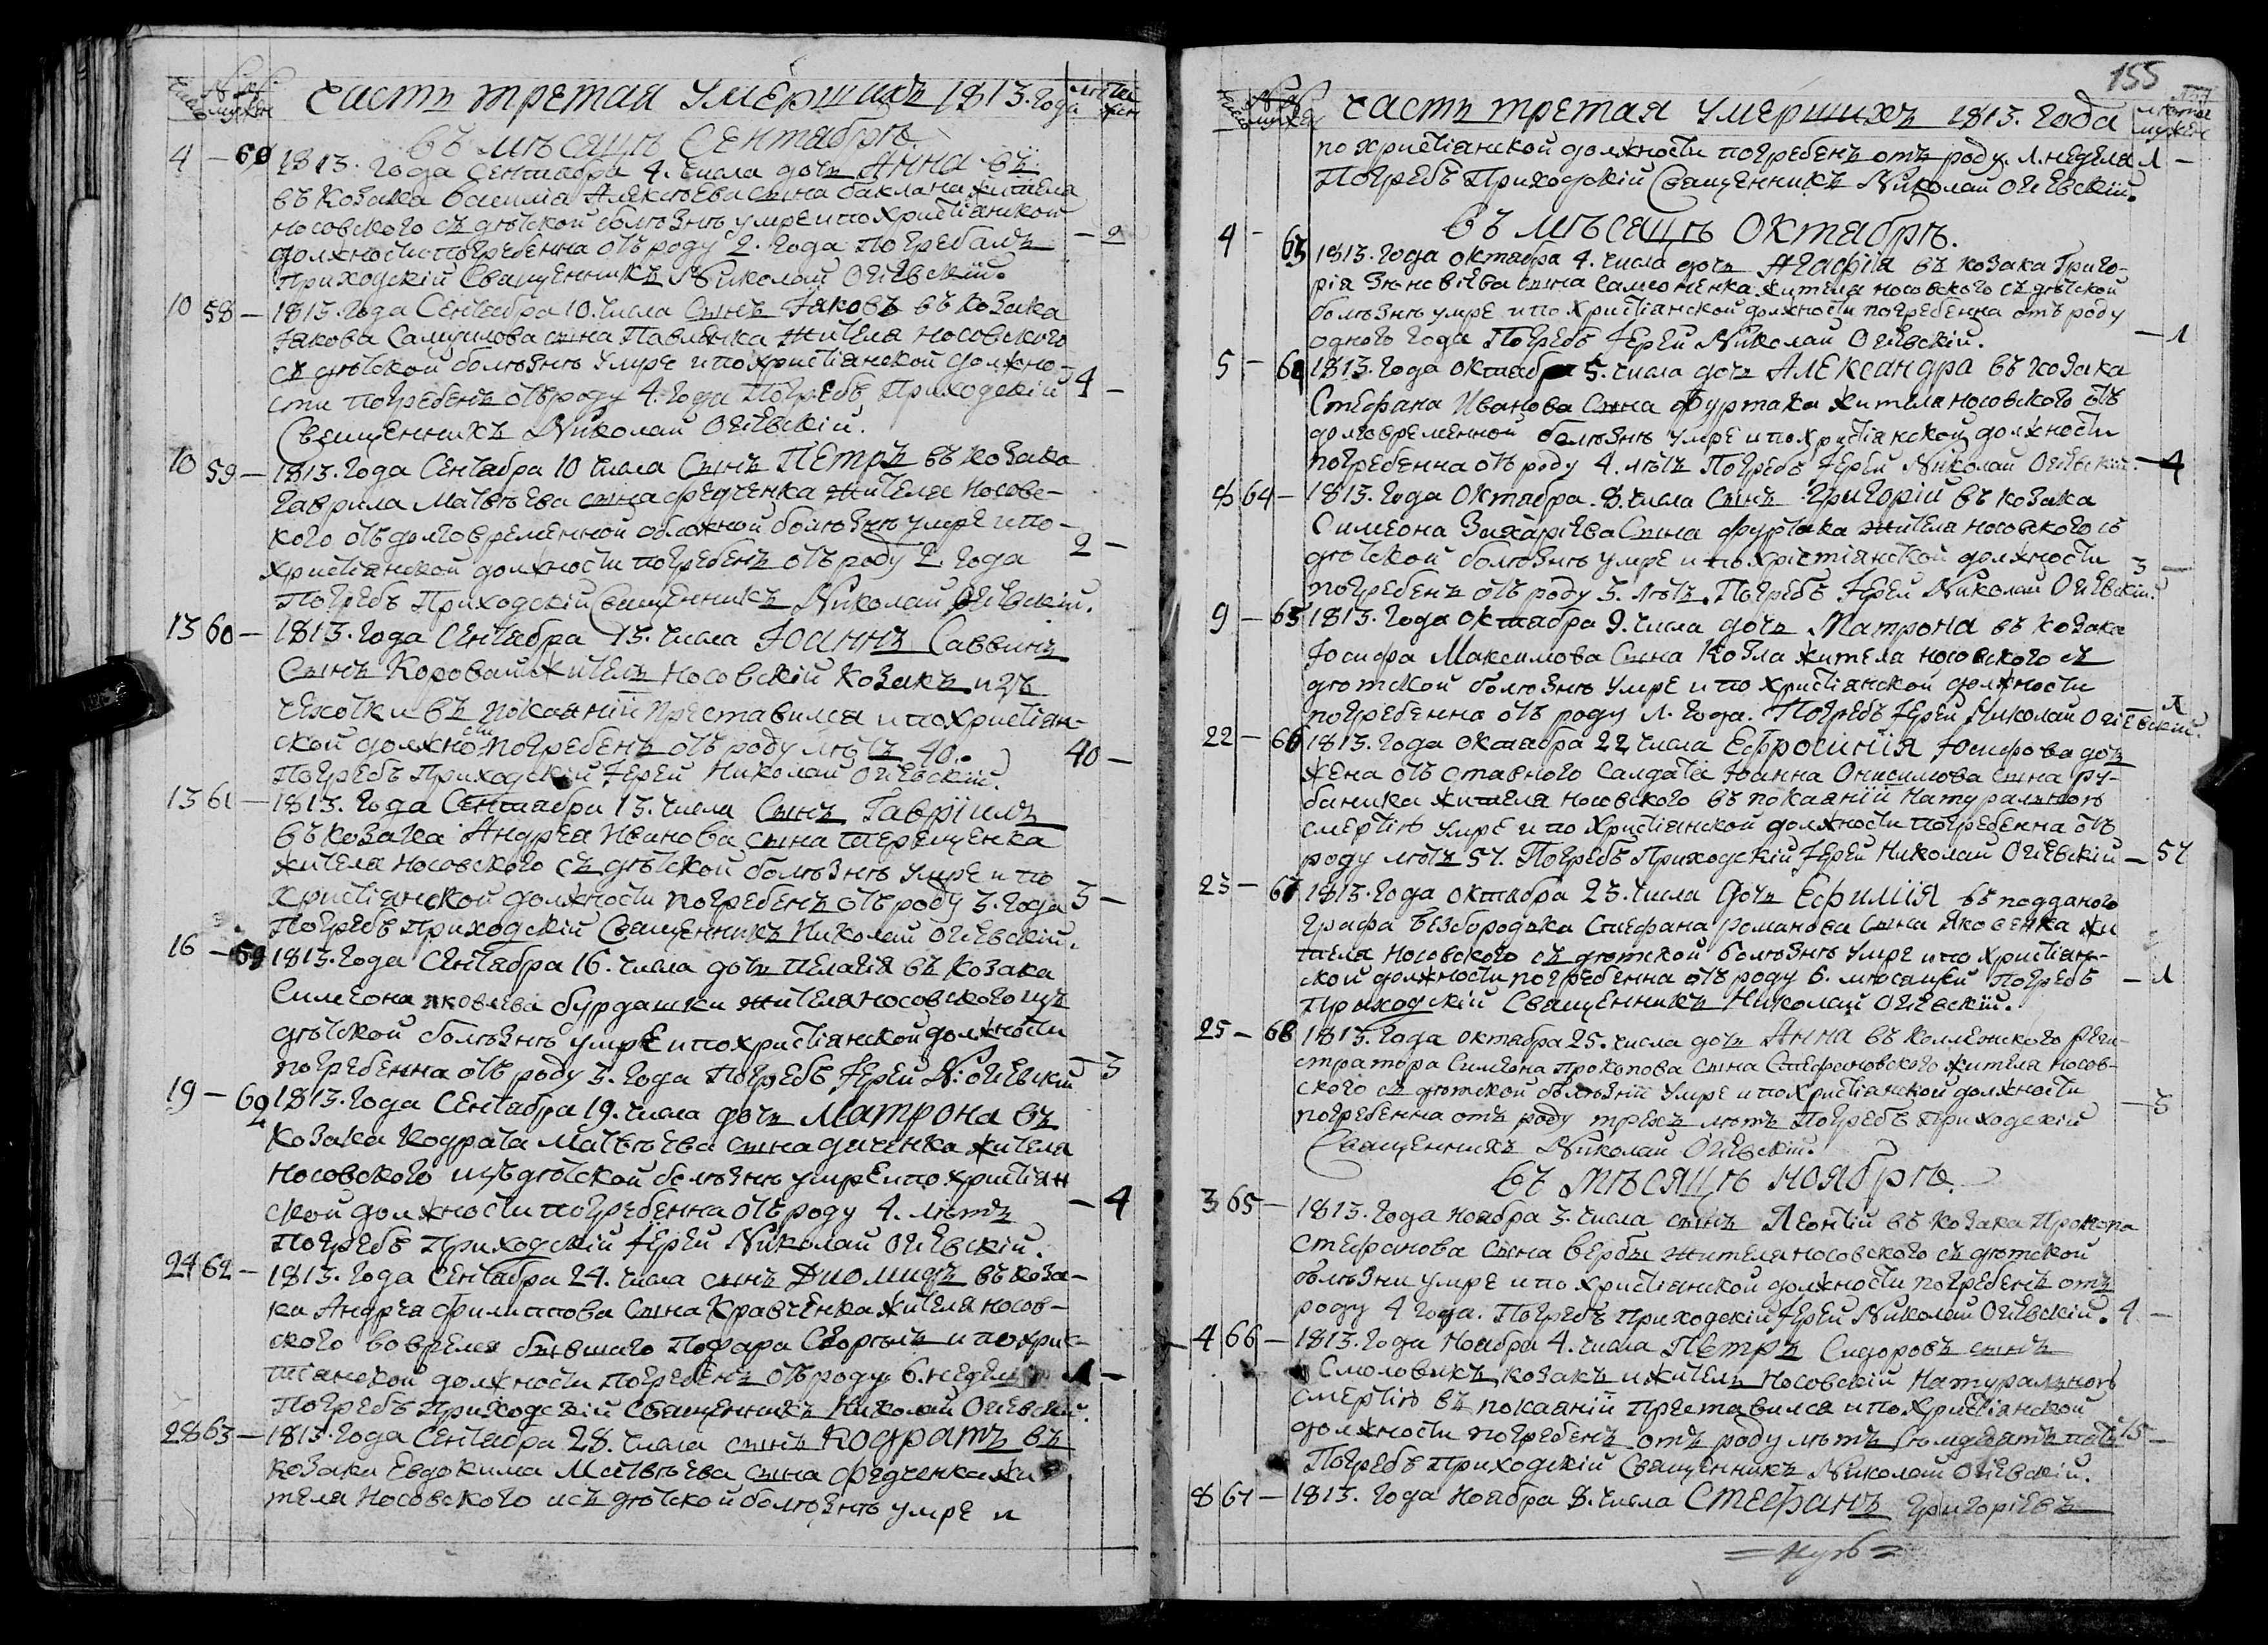 часть третая умершихъ 1813. года
въ мѣсяцѣ Сентабрѣ.
4 — 60 1813. года Сентабра 4. числа дочь Анна въ
въ козака василиа Алексѣева сына баклана жителя
носовского съ дѣтской болѣзнѣ умре и по христіанской
должности погребенна отъ роду 2. года погребалъ — 2
Приходскій Священникъ Николай Огіевскій.
10 58 — 1813. года Сентабра 10. числа Сынъ Іаковъ въ козака
Іакова Самуилова сына Павленка жителя носовского
съ дѣтской болѣзнѣ умре и по христіанской должно-
сти погребенъ отъ роду 4. года Погребъ Приходскій 4 —
Священникъ Николай Огіевскій.
10 59 — 1813. года Сентабра 10 числа Сынъ Петръ въ козака
Гаврила Матвѣева сына федченка жителя Носовс-
кого отъ долговременной обложной болѣзнѣ умре и по-
христіанской должности погребенъ отъ роду 2. года 2 —
Погребъ Приходскій Священникъ Николай Огіевскій.
13 60 — 1813. года Сентабра 13. числа Іоаннъ Саввинъ
Сынъ Коровай житель Носовскій козакъ изъ
чехотки въ покаяніи преставился и по христіан-
ской должности погребенъ отъ роду лѣтъ 40. 40 —
Погребъ Приходскій Іерей Николай Огіевскій.
13 61 — 1813. года Сентабра 13. числа Сынъ Гавріилъ
въ козака Андреа Иванова сына терещенка
жителя носовского съ дѣтской болѣзнѣ умре и по
христіанской должности погребенъ отъ роду 3. года 3 —
Погребъ Приходскій Священникъ Николай Огіевскій.
16 — 1813. года Сентабра 16. числа дочь пелагія въ козака
Симеона яковлева бурдашки жителя носовского изъ
дѣтской болѣзнѣ умре и по христіанской должности
погребенна отъ роду 3. года Погребъ Іерей Н: Огіевскій — 3
19 — 1813. года Сентабра 19. числа дочь Матрона въ
козака Кодрата Матвѣева сына диченка жителя
носовского изъ дѣтской болѣзнѣ умре и по христіан
ской должности погребенна отъ роду 4. лѣтъ — 4
Погребъ Приходскій Іерей Николай Огіевскій.
24 62 — 1813. года Сентабра 24. числа сынъ Диомидъ въ коза-
ка Андреа филиппова Сына Кравченка жителя носов-
ского во время бывшаго Пожара Сгорѣлъ и по хрис-
тіанской должности погребенъ отъ роду 6. недель 1 —
Погребъ Приходскій Священникъ Николай Огіевскій.
28 63 — 1813. года Сентабра 28. числа сынъ Кодратъ въ
козака Евдокима Матвѣева сына федченка жи
теля Носовского изъ дѣтской болѣзнѣ умре и
155
часть третая умершихъ 1813. года
по христіанской должности погребенъ отъ роду. 1. неделя 1 —
Погребъ Приходскій Священникъ Николай Огіевскій.
въ мѣсяцѣ Октабрѣ.
4 — 1813. года октабра 4. числа дочь Агафія въ козака Григо-
рія Зѣновіева сына Самсоненка жителя носовского съ дѣтской
болѣзнѣ умре и по христіанской должности погребенна отъ роду
одного года Погребъ Іерей Николай Огіевскій. — 1
5 — 1813. года октабра 5. числа дочь Александра въ козака
Стефана Иванова Сына фуртака жителя носовского отъ
долговременной болѣзнѣ умре и по христіанской должности
погребенна отъ роду 4. лѣтъ Погребъ Іерей Николай Огіевскій. — 4
8 64 — 1813. года Октабра. 8. числа Сынъ Григорій въ козака
Симеона Захаріева Сына фуртака жителя носовского съ
дѣтской болѣзнѣ умре и по христіянской должности 3 —
погребенъ отъ роду 3. лѣтъ. Погребъ Іерей Николай Огіевскій.
9 — 65 1813. года октабра 9. числа дочь Матрона въ козака
Іосифа Максимова Сына Козла жителя носовского съ
дѣтской болѣзнѣ умре и по христіанской должности
погребенна отъ роду 1. года. Погребъ Іерей Николай Огіевскій. 1
22 — 66 1813. года октабра 22 числа Ефросинія Іосифова дочь
жена отъставного Салдата Іоанна Онисимова сына ру-
баника жителя носовского въ покаяніи натуральною
смертію умре и по христіанской должности погребенна отъ
роду лѣтъ 57. Погребъ Приходскій Іерей Николай Огіевскій — 57
23 — 67 1813. года октабра 23. числа дочь Ефимія въ подданого
графа безбородька Стефана романова сына Яковенка жи
теля Носовского съ дѣтской болѣзнѣ умре и по христіан-
ской должности погребенна отъ роду 6. мѣсацей Погребъ — 1
Приходскій Священникъ Николай Огіевскій.
25 — 68 1813. года октабра 25. числа дочь Анна въ коллежского Реги-
стратора Симеона Прокопова Сына Стефановского жителя носов-
ского съ дѣтской болѣзніи умре и по христіанской должности
погребенна отъ роду трехъ лѣтъ Погребъ Приходскій — 3
Священникъ Николай Огіевскій.
въ мѣсяцѣ ноябрѣ.
3 65 — 1813. года ноабра 3. числа сынъ Леонтій въ козака Прокопа
Стефанова Сына вербы жителя носовского съ дѣтской
болѣзни умре и по христіанской должности погребенъ отъ
роду 4 года. Погребъ Приходскій Іерей Николай Огіевскій. 4 —
4 66 — 1813. года Ноабра 4. числа Петръ Сидоровъ сынъ
Смоловикъ козакъ и житель Носовскій натуральною
смертію въ покаяніи преставился и по христіанской
должности погребенъ отъ роду лѣтъ
Погребъ Приходскій Священникъ Николай Огіевскій.
8 67 — 1813. года Ноабра 8. числа Стефанъ Григоріевъ